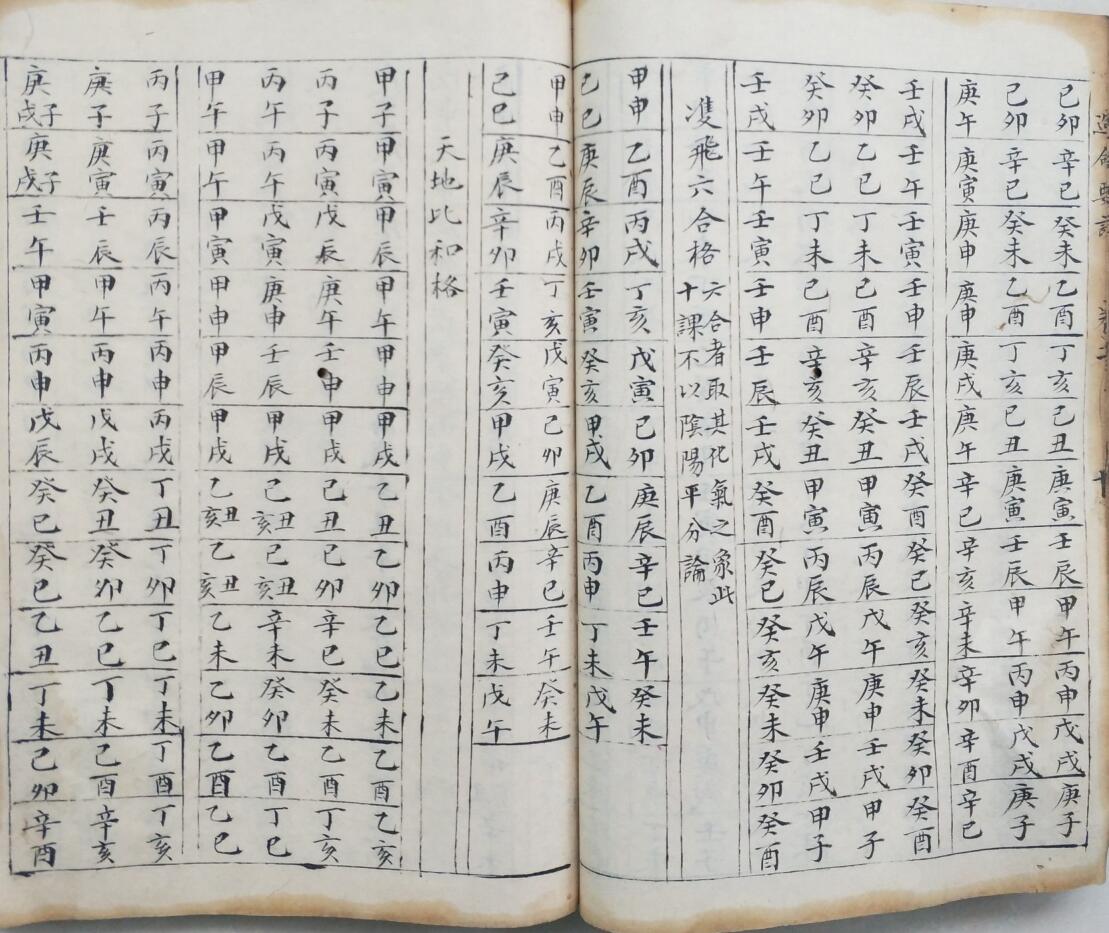 己卯 辛巳 癸未 乙酉 丁亥 己丑 庚寅 壬辰 甲午 丙申 戊戌 庚子
己卯 辛巳 癸未 乙酉 丁亥 己丑 庚寅 壬辰 甲午 丙申 戊戌 庚子
庚午 庚寅 庚申 庚申 庚戌 庚午 辛巳 辛亥 辛未 辛卯 辛酉 辛巳
壬戌 壬午 壬寅 壬申 壬辰 壬戌 癸酉 癸巳 癸亥 癸未 癸卯 癸酉
癸卯 乙巳 丁未 己酉 辛亥 癸丑 甲寅 丙辰 戊午 庚申 壬戌 甲子
癸卯 乙巳 丁未 己酉 辛亥 癸丑 甲寅 丙辰 戊午 庚申 壬戌 甲子
壬戌 壬午 壬寅 壬申 壬辰 壬戌 癸酉 癸巳 癸亥 癸未 癸卯 癸酉
隻飛六合格
六合者取其化氣之象此
十課不以陰陽平分論
甲申 乙酉 丙戌 丁亥 戊寅 己卯 庚辰 辛巳 壬午 癸未
己巳 庚辰 辛卯 壬寅 癸亥 甲戌 乙酉 丙申 丁未 戊午
甲申 乙酉 丙戌 丁亥 戊寅 己卯 庚辰 辛巳 壬午 癸未
己巳 庚辰 辛卯 壬寅 癸亥 甲戌 乙酉 丙申 丁未 戊午
天地比和格
甲子 甲寅 甲辰 甲午 甲申 甲戌 乙丑 乙卯 乙巳 乙未 乙酉 乙亥
丙子 丙寅 戊辰 庚午 壬申 甲戌 己丑 己卯 辛巳 癸未 乙酉 丁亥
丙午 丙午 戊寅 庚申 壬辰 甲戌 己丑亥 己丑亥 辛未 癸卯 乙酉 丁巳
甲午 甲午 甲寅 甲申 甲辰 甲戌 乙丑亥 乙丑亥 乙未 乙卯 乙酉 乙巳
丙子 丙寅 丙辰 丙午 丙申 丙戌 丁丑 丁卯 丁巳 丁未 丁酉 丁亥
庚子 庚寅 壬辰 甲午 丙申 戊戌 癸丑 癸卯 乙巳 丁未 己酉 辛亥
庚子戌 庚子戌 壬午 甲寅 丙申 戊辰 癸巳 癸巳 乙丑 丁未 己卯 辛酉